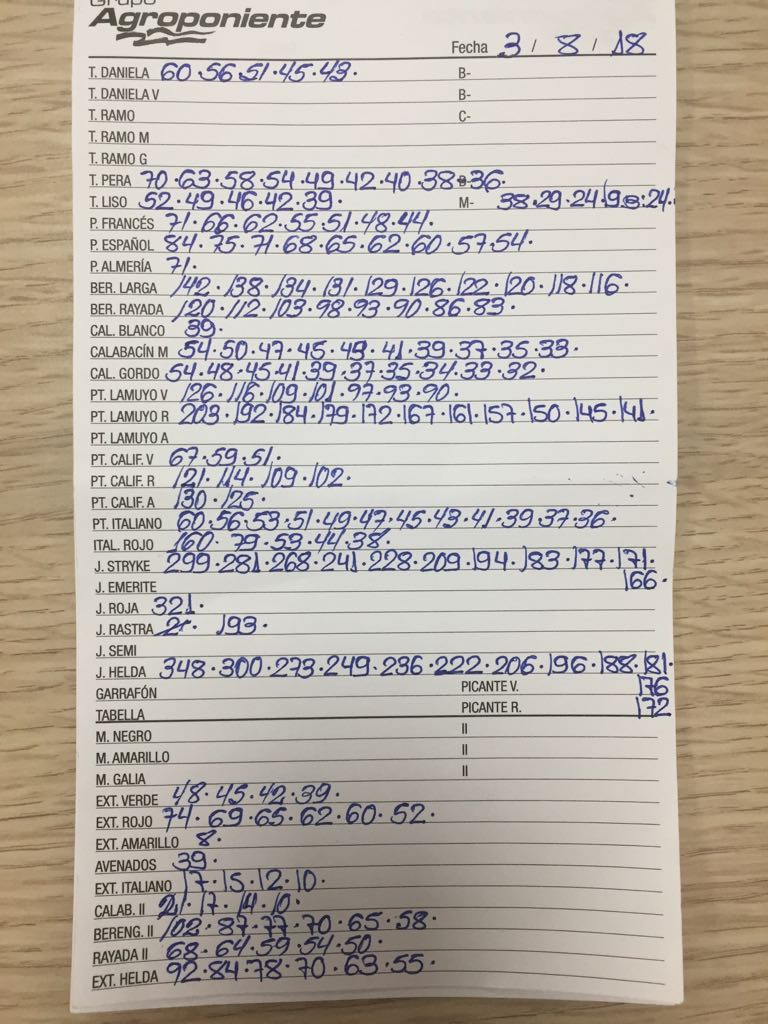 Grupo
Agroponiente
Fecha 3 / 8 / 18
T. DANIELA 60.56.51.45.43. B-
T. DANIELA V B-
T. RAMO C-
T. RAMO M
T. RAMO G
T. PERA 70.63.58.54.49.42.40.38.36.
T. LISO 52.49.46.42.39. M- 38.29.24
P. FRANCÉS 71.66.62.55.51.48.44.
P. ESPAÑOL 84.75.71.68.65.62.60.57.54.
P. ALMERÍA 71.
BER. LARGA 142.138.134.131.129.126.122.120.118.116.
BER. RAYADA 120.112.103.98.93.90.86.83.
CAL. BLANCO 39.
CALABACÍN M 54.50.47.45.43.41.39.37.35.33.
CAL. GORDO 54.48.45.41.39.37.35.34.33.32.
PT. LAMUYO V 126.116.109.101.97.93.90.
PT. LAMUYO R 203.192.184.179.172.167.161.157.150.145.141.
PT. LAMUYO A
PT. CALIF. V 67.59.51.
PT. CALIF. R 121.114.109.102.
PT. CALIF. A 130.125.
PT. ITALIANO 60.56.53.51.49.47.45.43.41.39.37.36.
ITAL. ROJO 160.79.59.44.38.
J. STRYKE 299.281.268.241.228.209.194.183.177.171.
J. EMERITE 166.
J. ROJA 321.
J. RASTRA 193.
J. SEMI
J. HELDA 348.300.273.249.236.222.206.196.188.181.
GARRAFÓN PICANTE V. 176
TABELLA PICANTE R. 172
M. NEGRO II
M. AMARILLO II
M. GALIA II
EXT. VERDE 48.45.42.39.
EXT. ROJO 74.69.65.62.60.52.
EXT. AMARILLO 8.
AVENADOS 39.
EXT. ITALIANO 17.15.12.10.
CALAB. II 21.17.14.10.
BERENG. II 102.87.77.70.65.58.
RAYADA II 68.64.59.54.50.
EXT. HELDA 92.84.78.70.63.55.